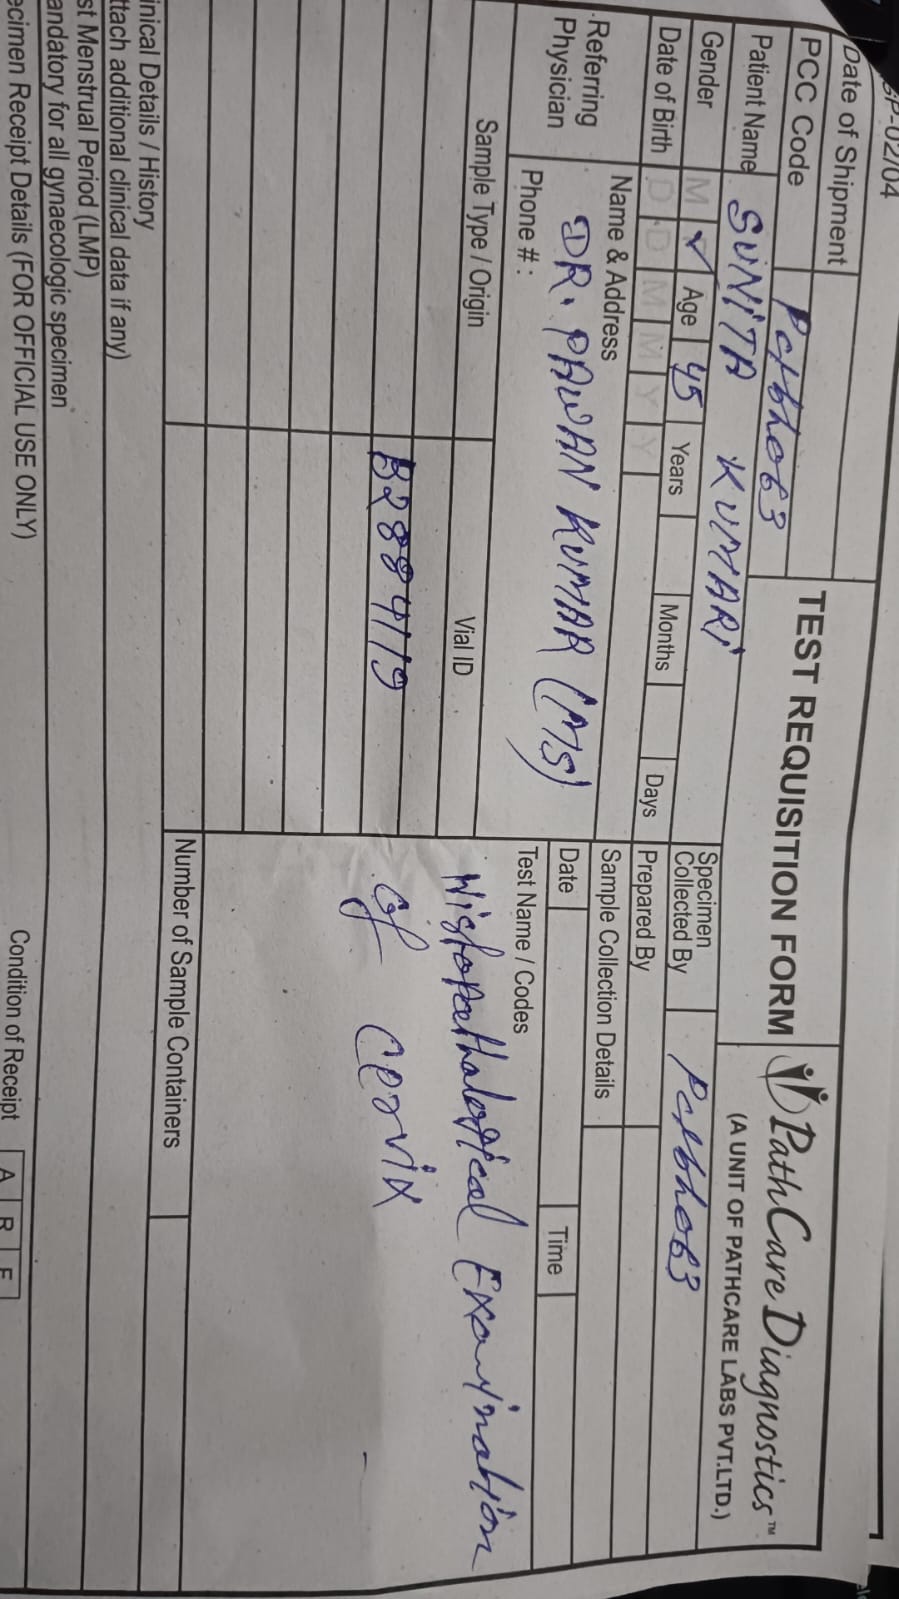 SP-02/04
Date of Shipment
PCC Code Pclbh063
TEST REQUISITION FORM
PathCare Diagnostics™
(A UNIT OF PATHCARE LABS PVT.LTD.)
Patient Name SUNITA KUMARI
Gender M ✓ Age 45 Years Months Days
Specimen Collected By Pclbh063
Date of Birth D D M M Y Y
Prepared By
Referring Physician
Name & Address
DR. PAWAN KUMAR (MS)
Phone # :
Sample Collection Details
Date Time
Sample Type / Origin Vial ID
Test Name / Codes
B2884119
Histopathalogical Examination
of Cervix
Number of Sample Containers
inical Details / History
ttach additional clinical data if any)
st Menstrual Period (LMP)
andatory for all gynaecologic specimen
ecimen Receipt Details (FOR OFFICIAL USE ONLY)
Condition of Receipt A R F